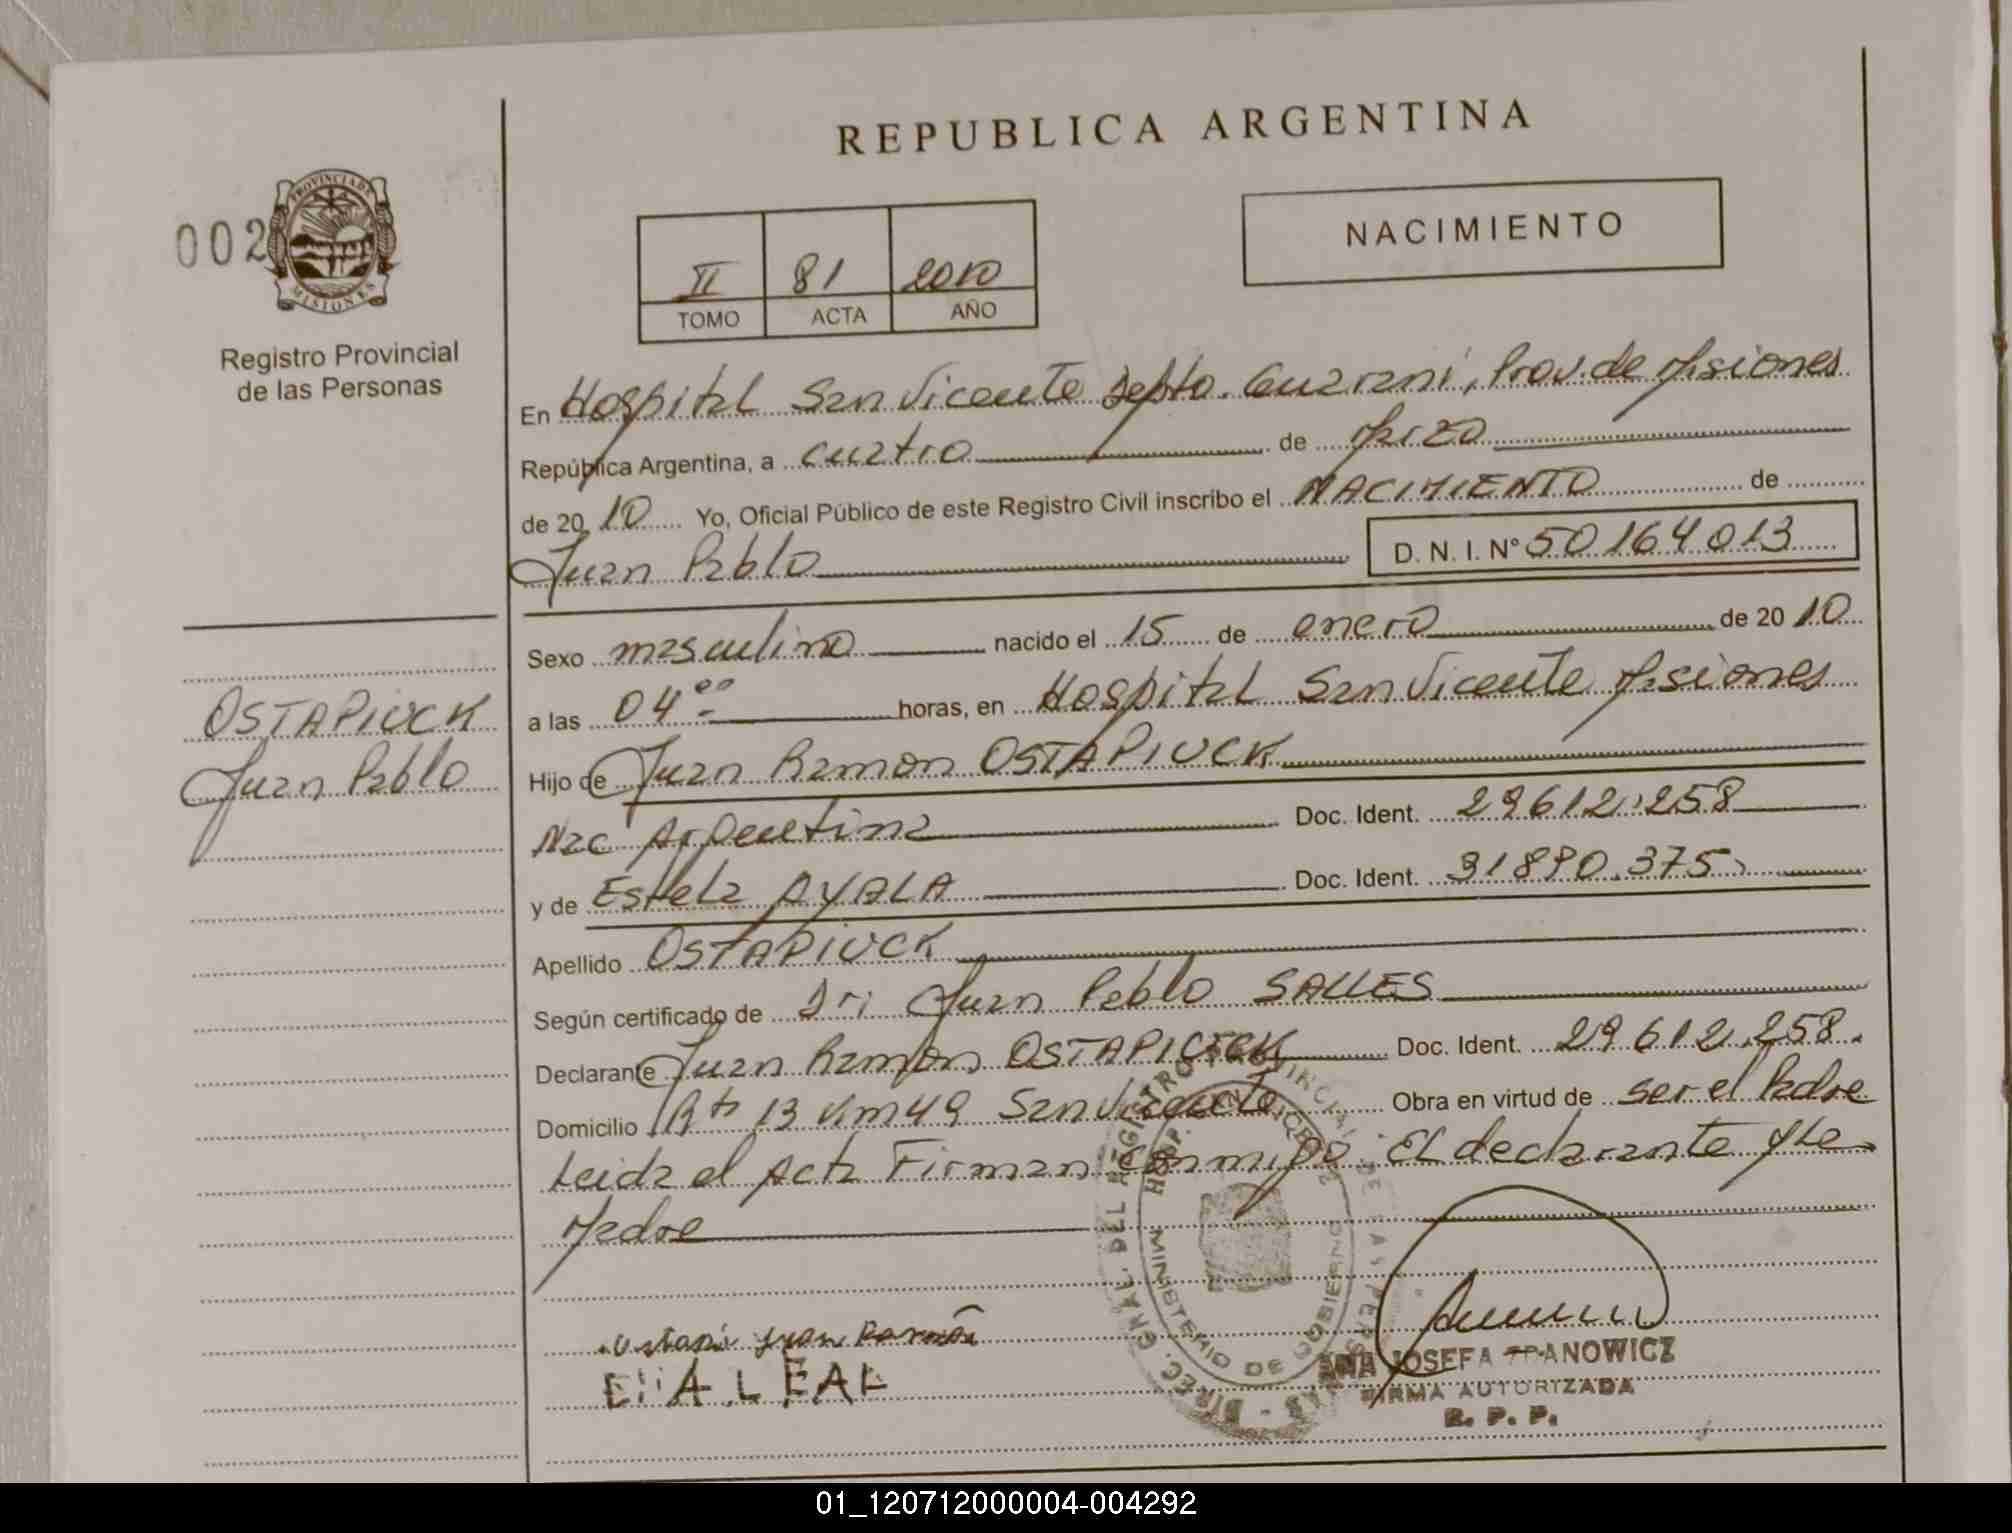 REPUBLICA ARGENTINA
002
PROVINCIA DE
MISIONES
Registro Provincial
de las Personas
II 81 2010
TOMO ACTA AÑO
NACIMIENTO
En Hospital San Vicente Depto. Guarani, Prov. de Misiones
República Argentina, a cuatro de Marzo
de 20 10 Yo, Oficial Público de este Registro Civil inscribo el NACIMIENTO de
Juan Pablo D. N. I. N° 50164013
Sexo masculino nacido el 15 de enero de 20 10
a las 04 00 horas, en Hospital San Vicente Misiones
OSTAPIUCK
Juan Pablo
Hijo de Juan Ramon OSTAPIUCK
Nac Argentina Doc. Ident. 29612.258
y de Estela AYALA Doc. Ident. 31890.375
Apellido OSTAPIUCK
Según certificado de Dr: Juan Pablo SALLES
Declarante Juan Ramon OSTAPIUCK Doc. Ident. 29612.258.
Domicilio Rta 13 Km 49 San Vicente Obra en virtud de ser el Padre
Leida el Acta Firman conmigo: El declarante y La
Madre
Juan Ramón
MINISTERIO DE GOBIERNO
JOSEFA
FIRMA AUTORIZADA
R. P. P.
01_120712000004-004292